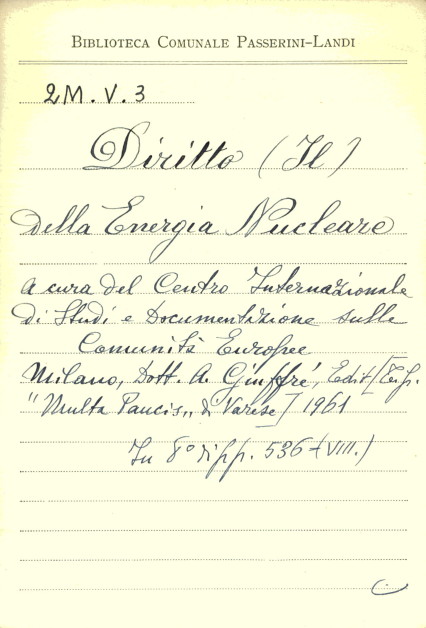 BIBLIOTECA COMUNALE PASSERINI-LANDI
2M. V. 3
Diritto (Il)
della Energia Nucleare
a cura del Centro Internazionale
di Studi e Documentazione sulle
Comunità Europee
Milano, Dott. A. Giuffré, Edit. [Tip.
"Multa Paucis„ di Varese] 1961
In 8° di pp. 536 + (VIII.)